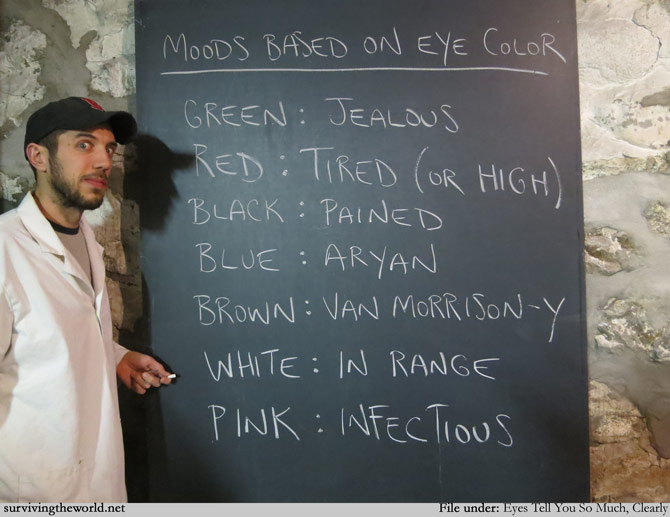 MOODS BASED ON EYE COLOR
GREEN: JEALOUS
RED: TIRED (OR HIGH)
BLACK: PAINED
BLUE: ARYAN
BROWN: VAN MORRISON-Y
WHITE: IN RANGE
PINK: INFECTIOUS
survivingtheworld.net File under: Eyes Tell You So Much, Clearly